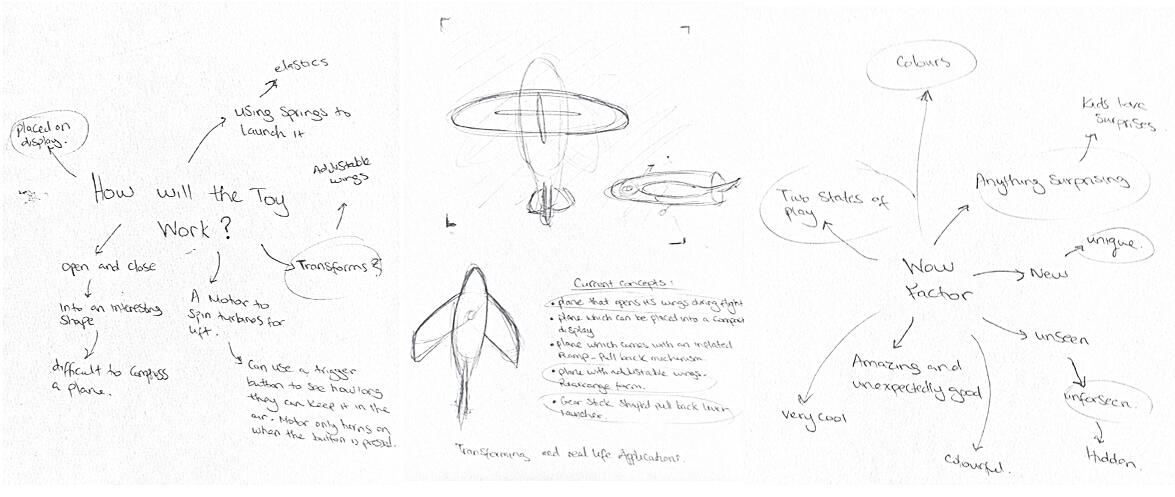 elastics
using springs to
launch it
placed on
display.
Adjustable
wings
How will the Toy
Work?
open and close
Into an interesting
shape
difficult to compress
a plane.
A Motor to
spin turbines for
lift.
Can use a trigger
button to see how long
they can keep it in the
air. Motor only turns on
when the button is pressed.
Transforms?
Current concepts:
• plane that opens its wings during flight
• plane which can be placed into a compact
display
• plane which comes with an inflated
Ramp - Pull back mechanism.
• plane with adjustable wings -
Rearrange form.
• Gear Stick Shaped pull back lever
launcher.
Transforming and real life Applications.
Colours
Kids love
surprises
Anything Surprising
Two States of
play
Wow
Factor
New
unique.
unseen
unforseen.
Hidden.
Amazing and
unexpectedly good
very cool
Colourful.